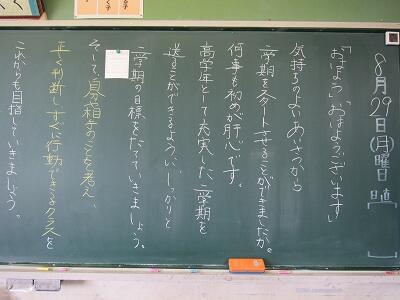 8月29日(月)曜日 日直
「おはよう」「おはようございます」
気持ちのよいあいさつから
二学期をスタートさせることができましたか。
何事も初めが肝心です。
高学年として充実した二学期を
送ることができるよう、しっかりと
二学期の目標をたてていきましょう。
そして、自分や相手のことを考え、
正く判断し、すぐに行動できるクラスを
これからも目指していきましょう。